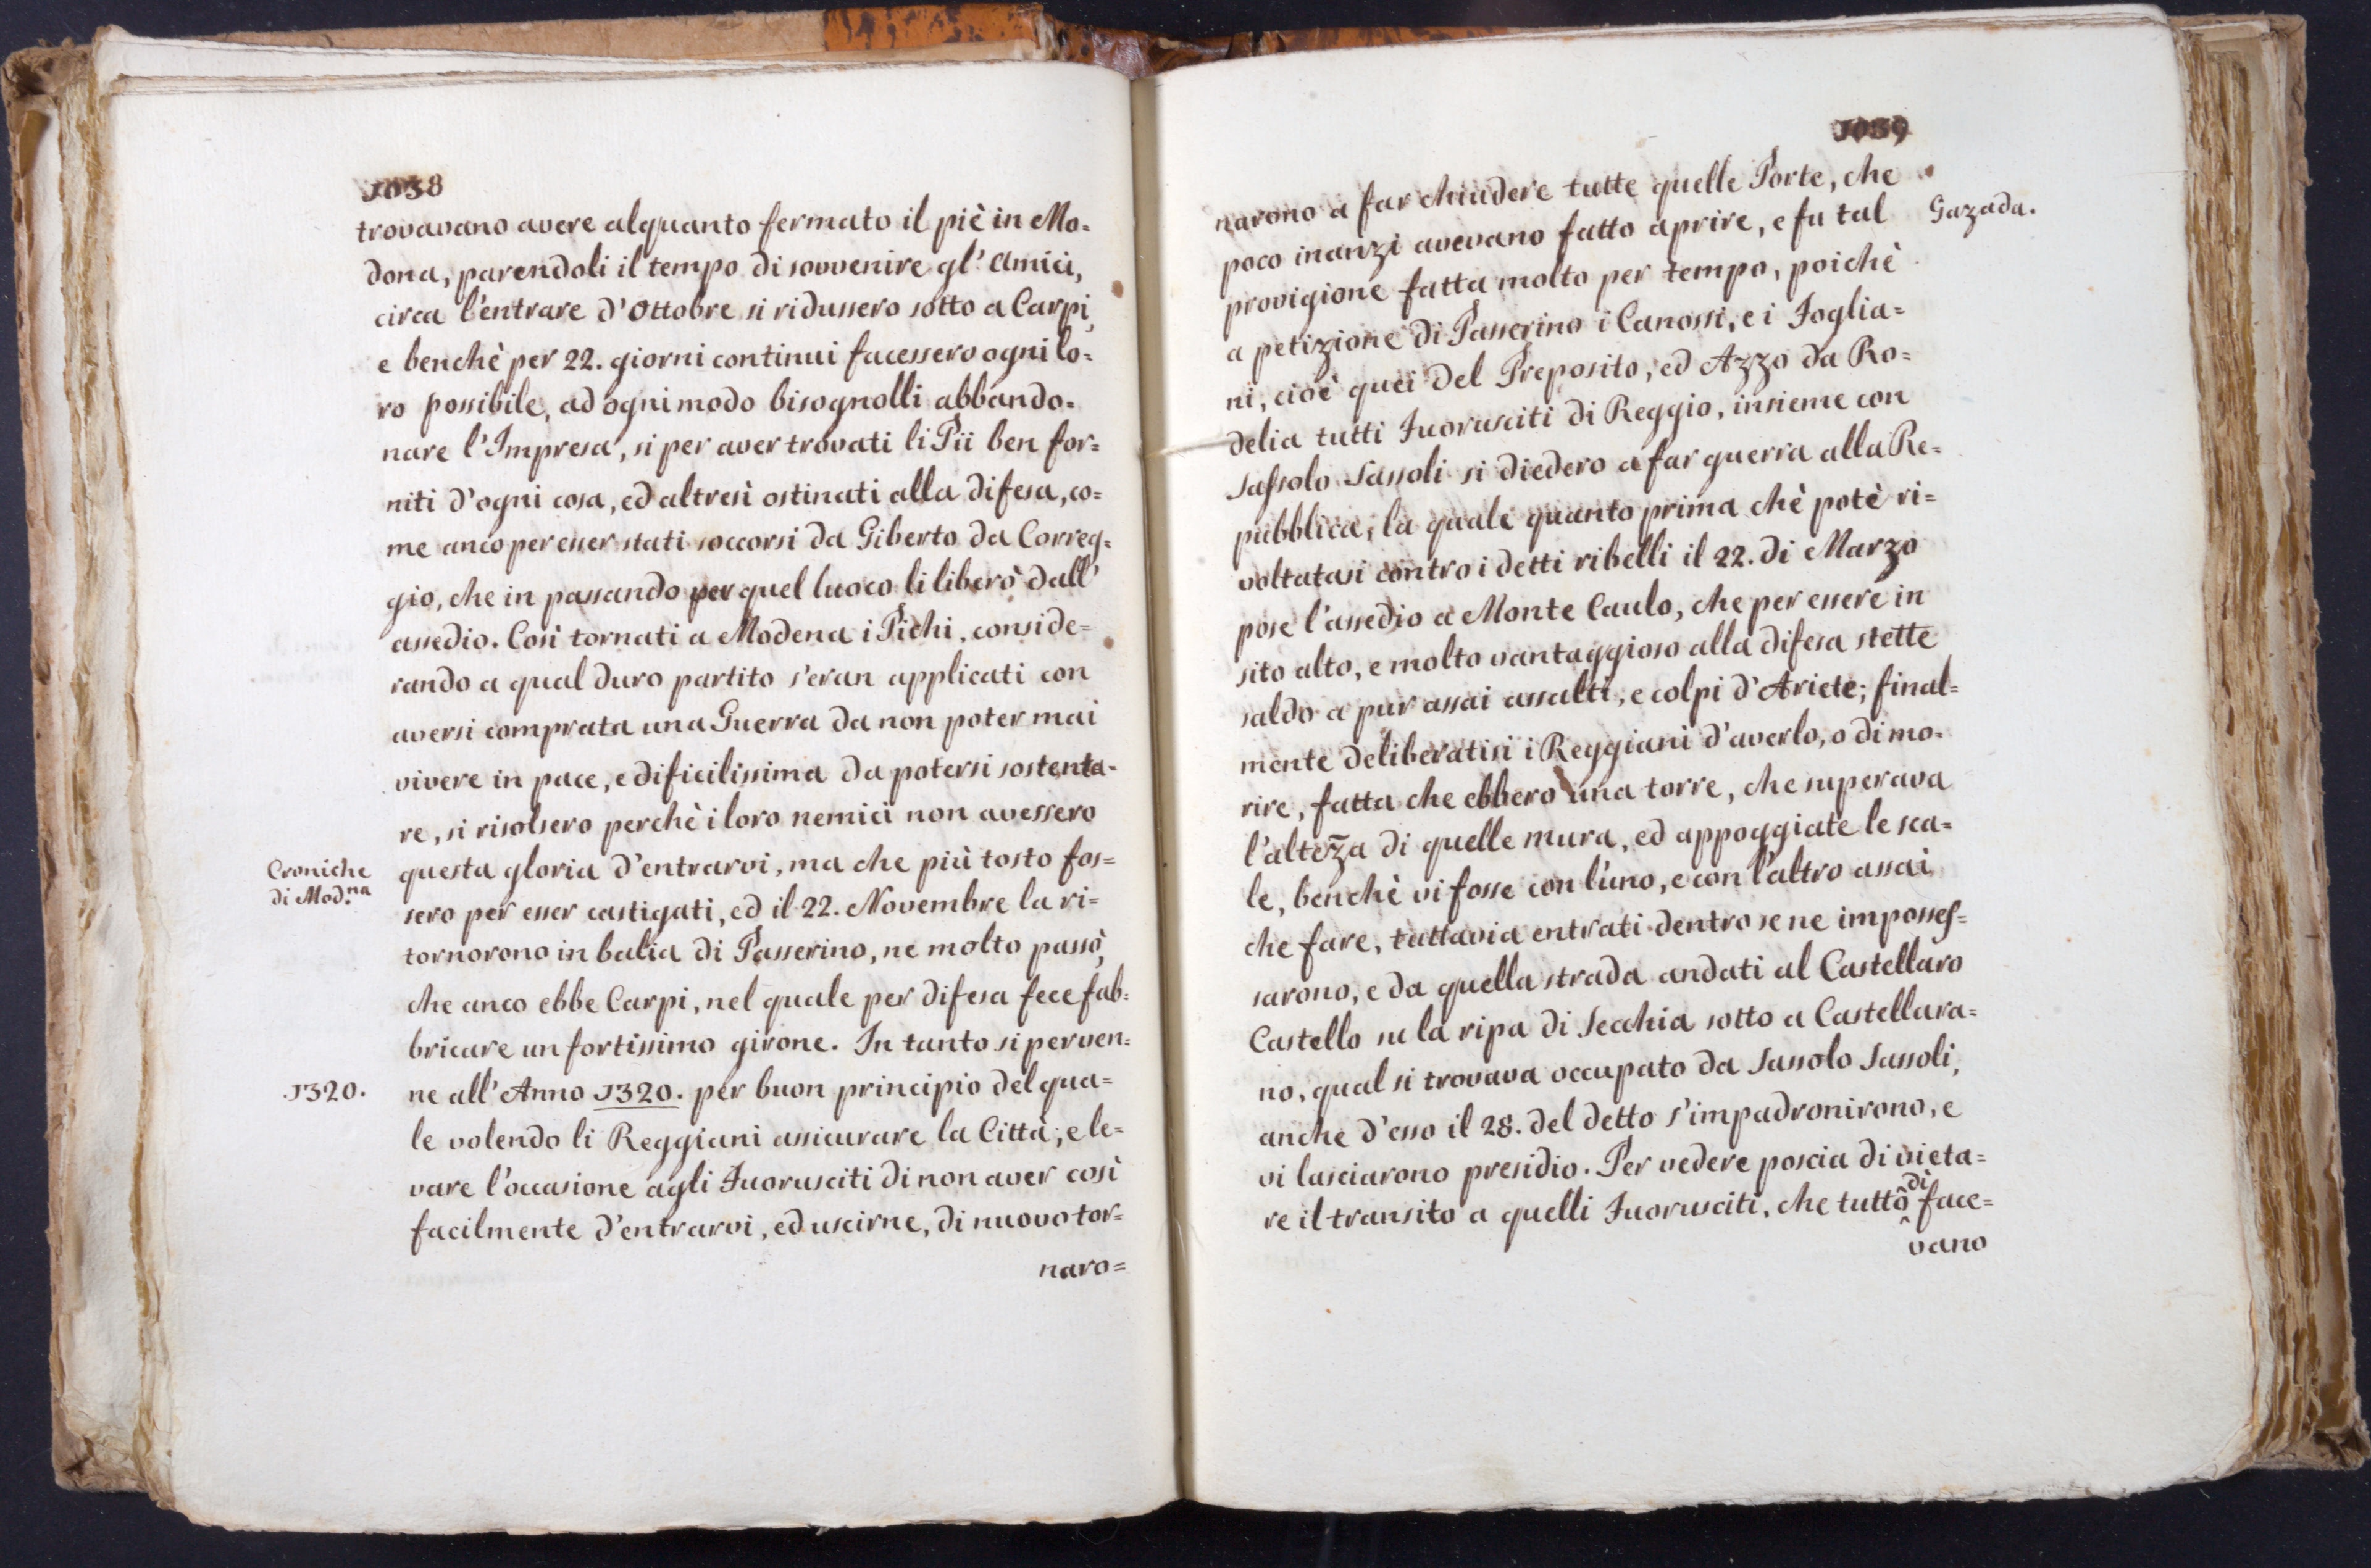 1038
trovavano avere alquanto fermato il piè in Mo=
dona, parendoli il tempo di sovvenire gl' Amici,
circa l'entrare d'Ottobre si ridussero sotto a Carpi,
e benchè per 22. giorni continui facessero ogni lo=
ro possibile, ad ogni modo bisognolli abbando=
nare l'Impresa, si per aver trovati li Pii ben for=
niti d'ogni cosa, ed altresì ostinati alla difesa, co=
me anco per esser stati soccorsi da Giberto da Correg=
gio, che in passando per quel luoco li liberò dall'
assedio. Così tornati a Modena i Pichi, conside=
rando a qual duro partito s'eran applicati con
aversi comprata una Guerra da non poter mai
vivere in pace, e dificilissima da potersi sostenta=
re, si risolsero perchè i loro nemici non avessero
Croniche
di Mod.na
questa gloria d'entrarvi, ma che più tosto fos=
sero per esser castigati, ed il 22. Novembre la ri=
tornorono in balia di Passerino, ne molto passò,
che anco ebbe Carpi, nel quale per difesa fece fab=
bricare un fortissimo girone. In tanto si perven=
.1320.
ne all' Anno 1320. per buon principio del qua=
le volendo li Reggiani assicurare la Città, e le=
vare l'occasione agli Fuorusciti di non aver così
facilmente d'entrarvi, ed uscirne, di nuovo tor=
naro=
1039
narono a far chiudere tutte quelle Porte, che
Gazada.
poco inanzi avevano fatto aprire, e fu tal
provigione fatta molto per tempo, poichè
a petizione di Passerino i Canossi, e i Foglia=
ni, cioè quei del Preposito, ed Azzo da Ro=
delia tutti Fuorusciti di Reggio, insieme con
Sassolo Sassoli si diedero a far guerra alla Re=
pubblica, la quale quanto prima chè potè ri=
voltatasi contro i detti ribelli il 22. di Marzo
pose l'assedio a Monte Caulo, che per essere in
sito alto, e molto vantaggioso alla difesa stette
saldo a pur assai assalti, e colpi d'Ariete; final=
mente deliberatisi i Reggiani d'averlo, o di mo=
rire, fatta che ebbero una torre, che superava
l'altez̃a di quelle mura, ed appoggiate le sca=
le, benchè vi fosse con l'uno, e con l'altro assai
che fare, tuttavia entrati dentro se ne imposses=
sarono, e da quella strada andati al Castellaro
Castello su la ripa di Secchia sotto a Castellara=
no, qual si trovava occupato da Sassolo Sassoli,
anche d'esso il 28. del detto s'impadronirono, e
vi lasciarono presidio. Per vedere poscia di vieta=
re il transito a quelli Fuorusciti, che tutto dì face=
vano